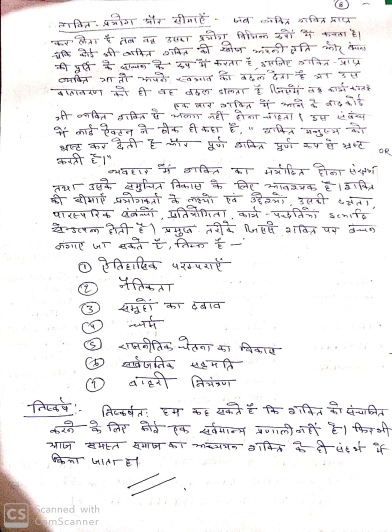 8
शक्ति-प्रयोग और सीमाएँ - जब व्यक्ति शक्ति प्राप्त
कर लेता है तब वह उसका प्रयोग विभिन्न रूपों में करता है।
कोई भी व्यक्ति शक्ति की खोज अपनी
की पूर्ति के साधन के रूप में करता है, इसलिए शक्ति-प्राप्त
व्यक्ति या तो अपने स्वभाव को बदल देता है या उस
वातावरण को ही वह बदल डालता है जिसमें वह कार्य करता
एक बार शक्ति में आने के बाद कोई
भी व्यक्ति शक्ति से अलग नहीं होना चाहता। इस संबंध
में लार्ड ऐक्टन ने ठीक ही कहा है, " शक्ति मनुष्य को
भ्रष्ट कर देती है और पूर्ण शक्ति पूर्ण रूप से भ्रष्ट
करती है।"
OR
व्यवहार में शक्ति का मर्यादित होना
तथा उसके समुचित विकास के लिए आवश्यक है। शक्ति
की सीमाएँ प्रयोगकर्ता के लक्ष्यों एवं उद्देश्यों, उसकी क्षमता,
पारस्परिक संबंधों, प्रतियोगिता, कार्य-पद्धतियों इत्यादि
होती है। प्रमुख तरीके जिससे शक्ति पर बंधन
लगाए जा सकते हैं, निम्न हैं —
① ऐतिहासिक परम्पराएँ
② नैतिकता
③ समूहों का दबाव
④ धर्म
⑤ राजनीतिक चेतना का विकास
⑥ सार्वजनिक सहमति
⑦ बाहरी नियंत्रण
निष्कर्ष:- निष्कर्षत: हम कह सकते हैं कि शक्ति को संचालित
करने के लिए कोई एक सर्वमान्य प्रणाली नहीं है। फिर भी
आज समस्त समाज का अध्ययन शक्ति के ही संदर्भ में
किया जाता है।
CS Scanned with
CamScanner